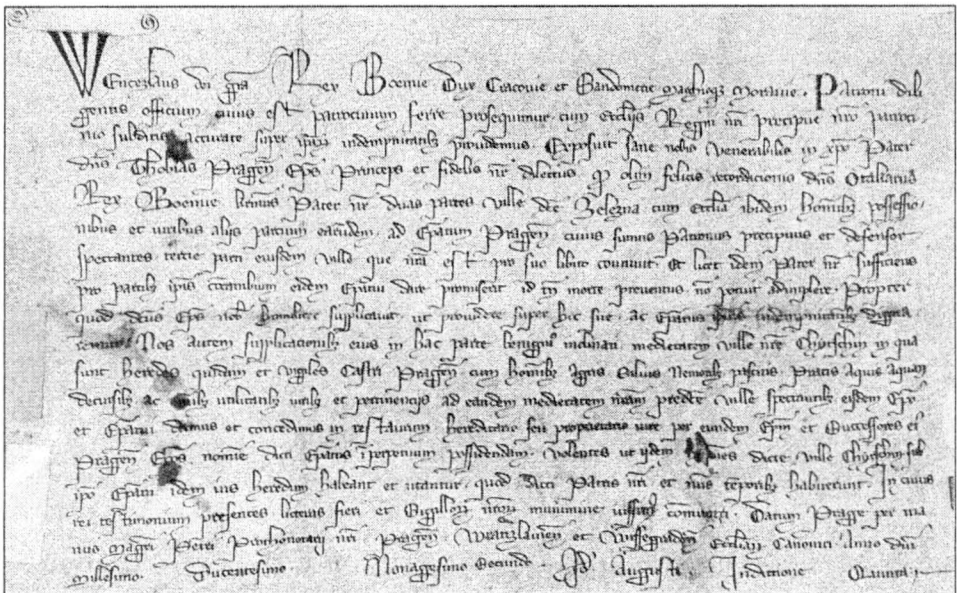 Wenczeslaus dei gra Rex Boemie Dux Cracovie et Sandomirie Marchioqz Moravie. Patroni dili
gentis officium cuius est patrocinium ferre prosequimur cum Ecclijs Regni nri precipue nro patroci
nio subditis accurate super ipsaz indempnitatibz providemus. Exposuit sane nobis Venerabilis in xpo Pater
dns Thobias Pragen Eps Princeps et fidelis nr dilectus qd olim felicis recordacionis dns Otakarus
Rex Boemie Pater nr duas partes ville dce Zelezna cum Ecclia ibidem hominibz possessio
nibus et iuribus alijs parcium earundem ad Epatum Pragen cuius sumus Patronus precipuus et defensor
spectantes tercie parti eiusdem ville que nra est pro suo libito Et licet idem Pater nr sufficiens
pro partibz ipsis eidem Epatui dare promiserit id tn morte preventus no potuit adimplere. Propter
quod dcus Eps nobis supplicavit ut providere super hic sue ac Epatus indempnitatibz
Nos autem supplicacionibz eius in hac parte inclinati medietatem ville nre in qua
sunt heredes quidam et vigiles Castri Pragen cum hominibz Agris Silvis Nemoribz pascuis Pratis Aquis aquarum
decursibz ac utilitatibz et pertinencijs ad eandem medietatem nram ville spectantibz eisdem Epo
et Epatui damus et concedimus in restaurum hereditarie seu proprietatis iure per eundem Epm et Successores ei
Pragen Epos nomine dicti Epatus perpetuum possidendam. Volentes ut ijdem dicte ville sub
ipo Epatu idem ius heredum habeant et utantur quod dicti Patris nri et nris temporibz habuerunt. In cuius
rei testimonium presentes litteras fieri et Sigilloruz nroruz munimine Datum Prage per ma
nus Magri Petri Prothonotarij nri Pragen Wratzlavien et Wissegraden Eccliaruz Canonici. Anno dni
Millesimo. Ducentesimo. Nonagesimo Secundo. Augusti Indictione Quinta